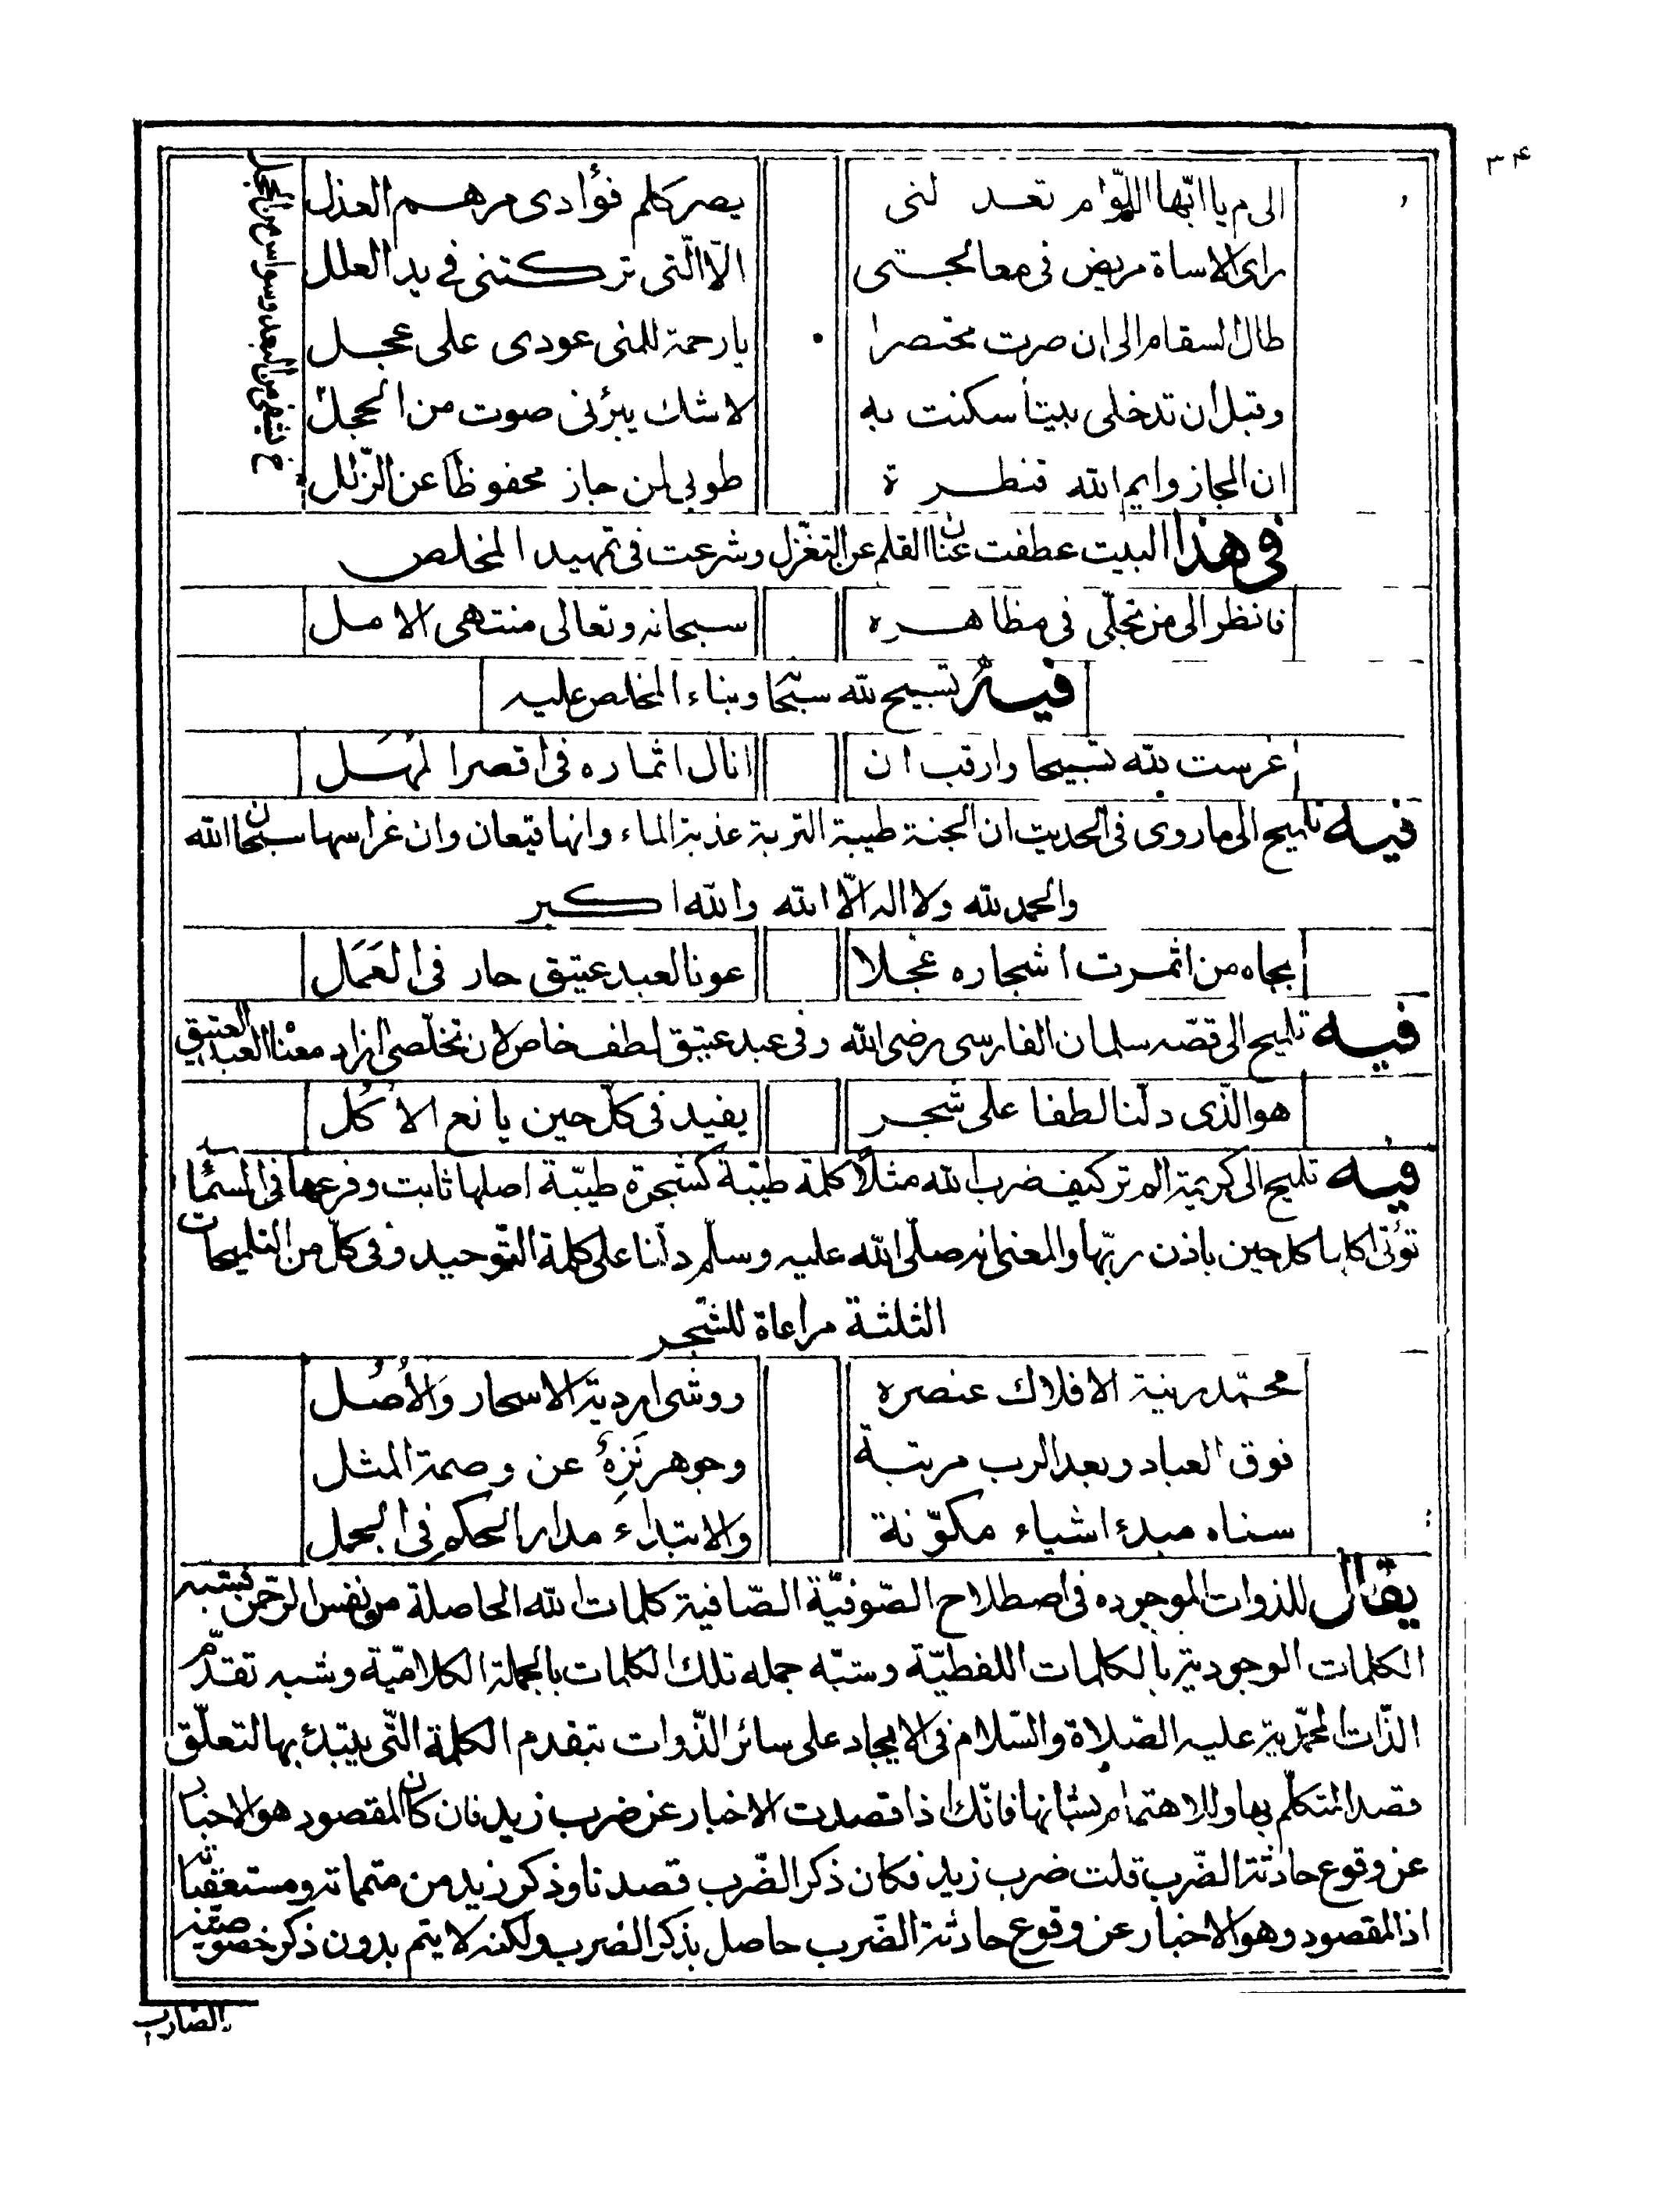 ۳۴
الى م يا ايّها اللوّام تعد لنى يصر كلم فؤادى مرهم العذل
راى الاساة مريض فى معالجتى الّا الّتى تركتنى فى يد العلل
طال السقام الى ان صرت مختصرا يا رحمة للمنى عودى على عجل
وقبل ان تدخلى بيتا سكنت به لا شك يبرئنى صوت من الحجل
ان المجاز وايم الله قنطرة طوبى لمن جاز محفوظا عن الزّلل
فى هذا البيت عطفت عنان القلم عن التغزّل وشرعت فى تمهيد المخلص
فانظر الى من تجلّى فى مظاهره سبحانه وتعالى منتهى الامل
فيه تسبيح لله سبحا وبناء المخلص عليه
غرست لله تسبيحا وارقب ان انال اثماره فى اقصر المهل
فيه تلميح الى ما روى فى الحديث ان الجنة طيبة التربة عذبة الماء وانها قيعان وان غراسها سبحان الله
والحمد لله ولا اله الّا الله والله اكبر
بجاه من اثمرت اشجاره عجلا عونا لعبد عتيق حار فى العمل
فيه تلميح الى قصّه سلمان الفارسى رضى الله وفى عبد عتيق لطف خاص لان تخلّصى ازاد معناه العبد العتيق
هو الّذى دلّنا لطفا على شجر يفيد فى كلّ حين يانع الاُكُل
فيه تلميح الى كريمة الم تر كيف ضرب الله مثلاً كلمة طيّبة كشجرة طيّبة اصلها ثابت وفرعها فى السماء
تؤتى اكلها كل حين باذن ربّها والمعنى انه صلّى الله عليه وسلّم دلّنا على كلمة التّوحيد وفى كلّ من التلميحات
الثلثة مراعاة للشّجر
محمّد زينة الافلاك عنصره ووشى اردية الاسحار والاُصُل
فوق العباد وبعد الرب مرتبة وجوهر نَزِهٌ عن وصمة المثل
سناه مبدء اشياء مكوّنة والابتداء مدار الحكم فى الجمل
يقال للذوات الموجوده فى اصطلاح الصّوفيّة الصّافية كلمات الله الحاصلة من نفس الرحمن فشبه
الكلمات الوجودية بالكلمات اللفظيّة وشبّه جمله تلك الكلمات بالجملة الكلاميّة وشبه تقدّم
الذّات المحمّدية عليه الصّلاة والسّلام فى الايجاد على سائر الذّوات بتقدم الكلمة الّتى يبتدء بها لتعلّق
قصد المتكلّم بها وللاهتمام بشانها فانّك اذا قصدت الاخبار عن ضرب زيد فان كان المقصود هو الاخبار
عن وقوع حادثة الضّرب قلت ضرب زيد فكان ذكر الضّرب قصدنا وذكر زيد من متمماته ومستعقباته
اذ المقصود وهو الاخبار عن وقوع حادثة الضّرب حاصل بذكر الضرب ولكنه لا يتم بدون ذكر خصوصيّة
الضارب